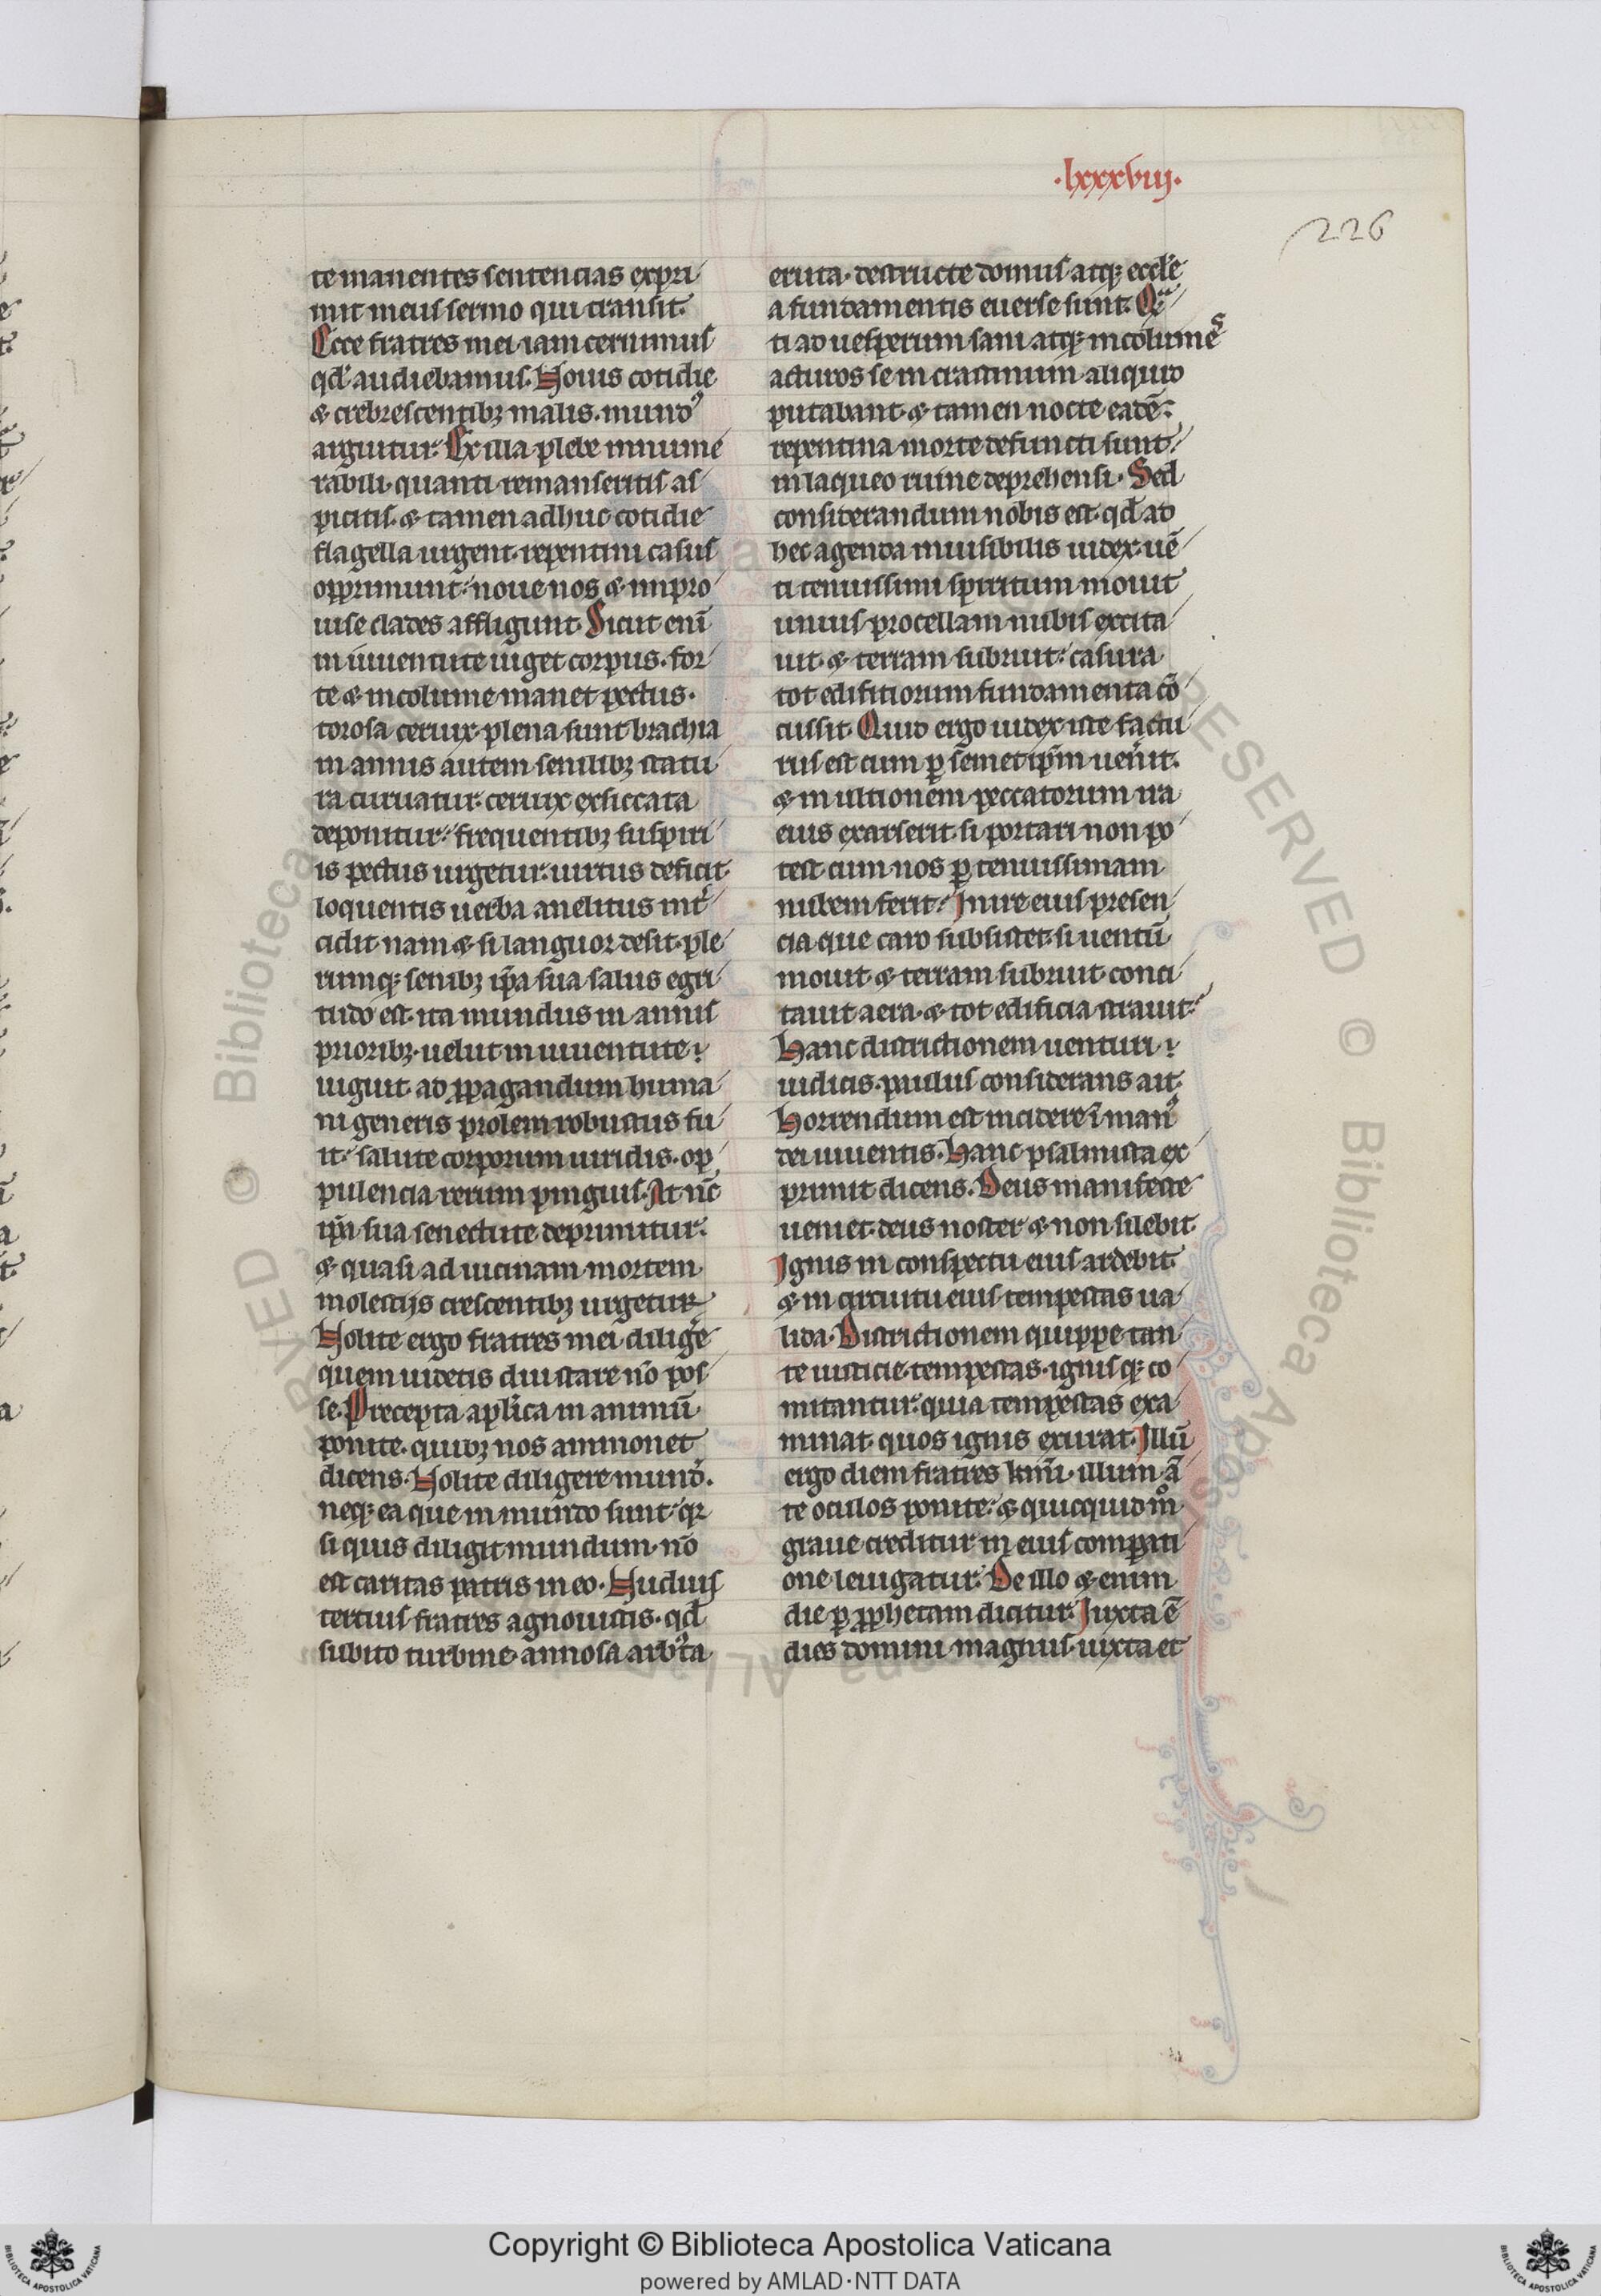 .lxxxviij.
226
te manentes sentencias expri
mit meus sermo qui transit.
Ecce fratres mei iam cernimus
qđ audiebamus. Nouis cotidie
& crebrescentibꝫ malis. mundꝰ
arguitur. Ex illa plebe innume
rabili quanti remanseritis as
picitis. & tamen adhuc cotidie
flagella urgent. repentini casus
opprimunt. noue nos & impro
uise clades affligunt. Sicut enī
in iuuentute uiget corpus. for
te & incolume manet pectus.
torosa ceruix. plena sunt brachia
in annis autem senilibꝫ statu
ra curuatur. ceruix exsiccata
deponitur. frequentibꝫ suspiri
is pectus urgetur. uirtus deficit
loquentis uerba anelitus int̾
cidit nam & si languor desit. ple
rumqꝫ senibꝫ ip̄a sua salus egri
tudo est. ita mundus in annis
prioribꝫ uelut in iuuentute
uiguit ad ꝓpagandum huma
ni generis prolem robustus fu
it. salute corporum uiridis. op
pulencia rerum pinguis. At nūc
ip̄a sua senectute deprimitur.
& quasi ad uicinam mortem
molestijs crescentibꝫ urgetur
Nolite ergo fratres mei diligē
quem uidetis diu stare nō pos
se. Precepta apl̄ica in animū
ponite. quibꝫ nos ammonet
dicens. Nolite diligere mundū.
neqꝫ ea que in mundo sunt. qr
si quis diligit mundum nō
est caritas patris in eo. Nudius
tertius fratres agnouistis. qđ
subito turbine annosa arbusta
eruta. destructe domus atqꝫ eccłe
a fundamentis euerse sunt. Quā
ti ad uesperum sani atqꝫ incolumes
acturos se in crastinum aliquid
putabant. & tamen nocte eadē
repentina morte defuncti sunt
in laqueo ruine deprehensi. Sed
considerandum nobis est. qđ ad
hec agenda inuisibilis iudex. uē
ti tenuissimi spiritum mouit
unius procellam nubis excita
uit. & terram subruit. casura
tot edifitiorum fundamenta cō
cussit. Quid ergo iudex iste factu
rus est cum ꝑ semet ip̄m uen̾it.
& in ultionem peccatorum ira
eius exarserit. si portari non po
test cum nos ꝑ tenuissimam
nubem ferit. In ire eius presen
cia que caro subsistet. si uentū
mouit & terram subruit conci
tauit aera. & tot edificia strauit.
Hanc districtionem uenturi
iudicis. paulus considerans ait.
Horrendum est incidere ī manꝰ
dei uiuentis. Hanc psalmista ex
primit dicens. Deus manifeste
ueniet. deus noster & non silebit
Ignis in conspectu eius ardebit
& in circuitu eius tempestas ua
lida. Districtionem quippe tan
te iusticie. tempestas. ignisqꝫ co
mitantur. quia tempestas exa
minat quos ignis exurat. Illū
ergo diem fratres kmi. illum ā
te oculos ponite. & quicquid mō
graue creditur in eius compati
one leuigatur. De illo & enim
die ꝑ ꝓphetam dicitur. Iuxta ē
dies domini magnus. iuxta et
Copyright © Biblioteca Apostolica Vaticana
powered by AMLAD·NTT DATA